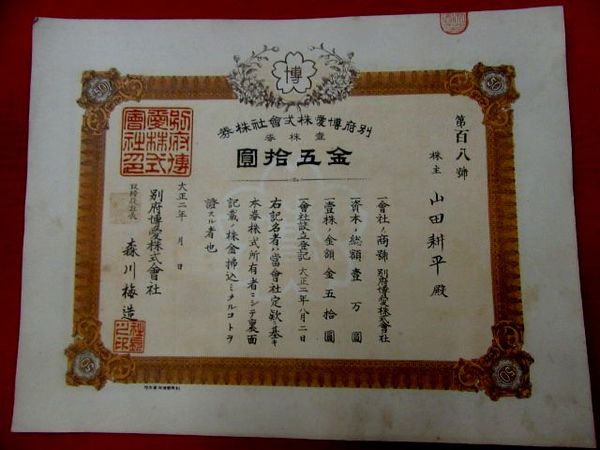 博
別府博愛株式會社株券
壹株券
金五拾圓
第百八號
株主 山田耕平殿
一會社ノ商號 別府博愛株式會社
一資本ノ総額壹万圓
一壹株ノ金額金五拾圓
一會社設立登記 大正二年八月二日
右記名者ハ當會社定欵ニ基キ
本券株式所有者ニシテ裏面
記載ノ株金拂込ミタルコトヲ
證スル者也
大正二年 月 日
別府博愛株式會社
森川梅造
別府博
愛株式
會社之
50
50
50
50